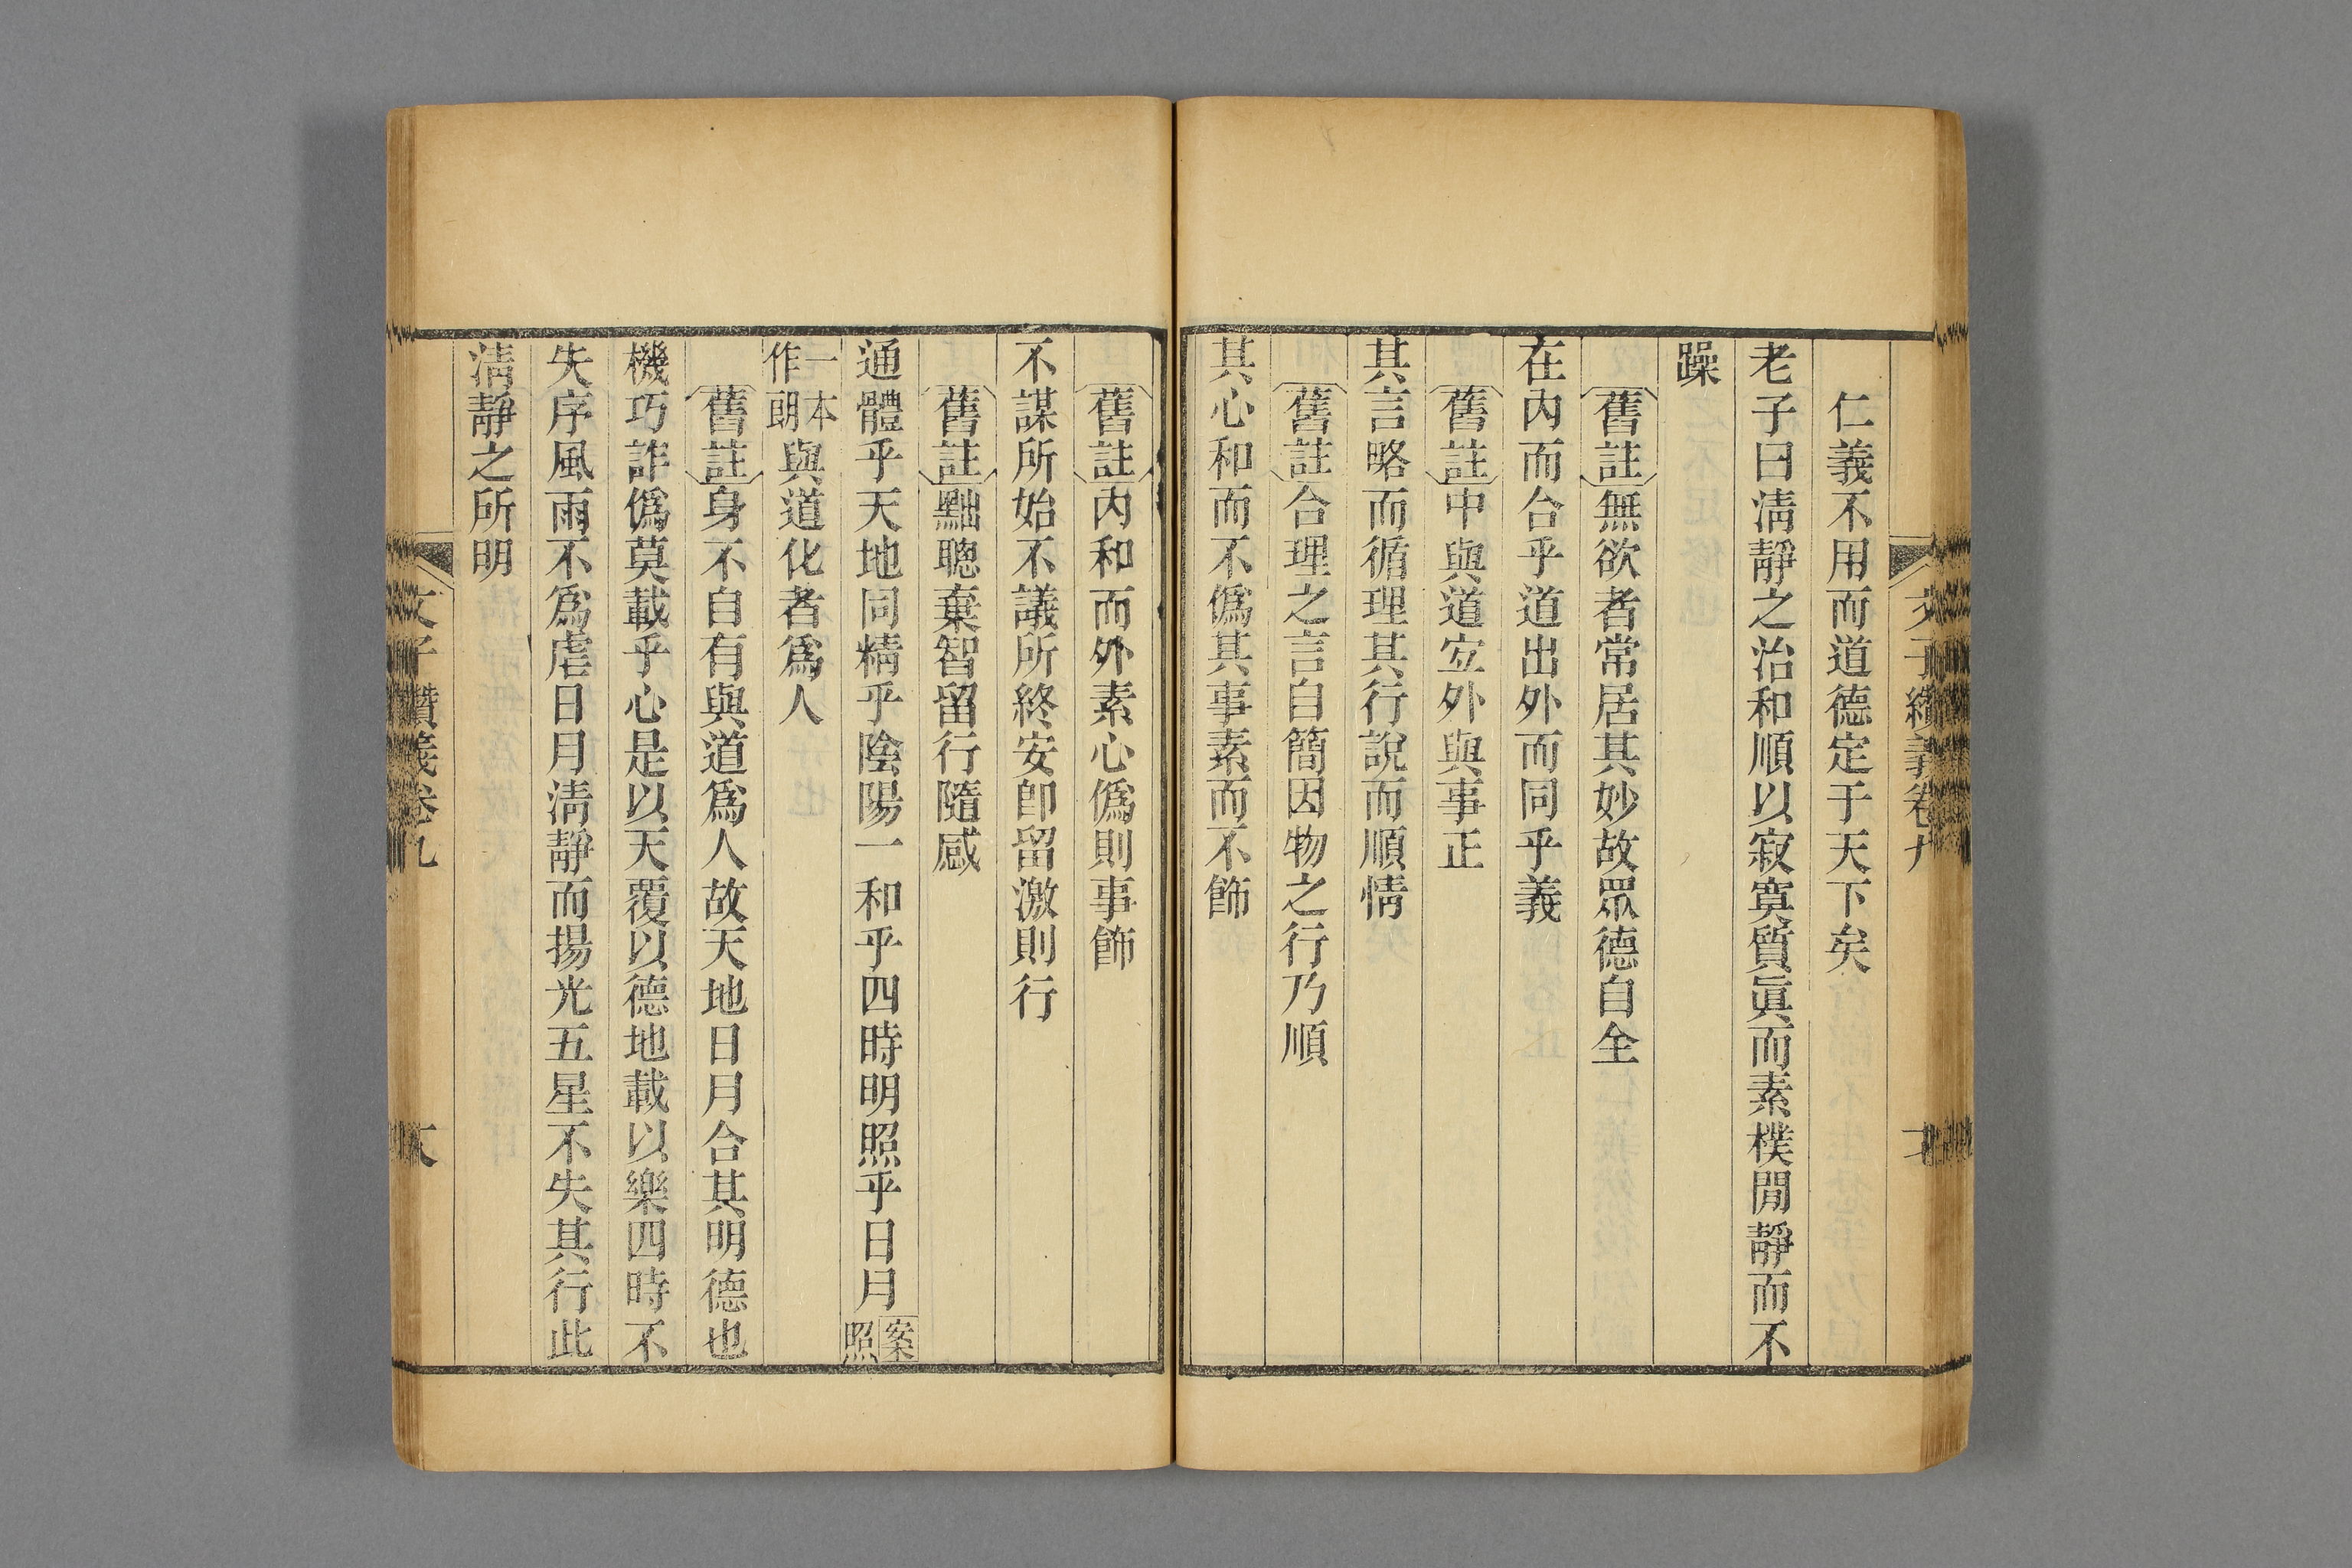 文子纘義卷九
仁義不用而道德定于天下矣
老子曰淸靜之治和順以寂寞質眞而素樸閒靜而不
躁
舊註無欲者常居其妙故眾德自全
在內而合乎道出外而同乎義
舊註中與道㝎外與事正
其言略而循理其行說而順情
舊註合理之言自簡因物之行乃順
其心和而不僞其事素而不飾
舊註內和而外素心僞則事飾
不謀所始不議所終安卽留激則行
舊註黜聰棄智留行隨感
通體乎天地同精乎陰陽一和乎四時明照乎日月案照
一本作朗與道化者爲人
舊註身不自有與道爲人故天地日月合其明德也
機巧詐僞莫載乎心是以天覆以德地載以樂四時不
失序風雨不爲虐日月淸靜而揚光五星不失其行此
淸靜之所明
文子纘義卷九